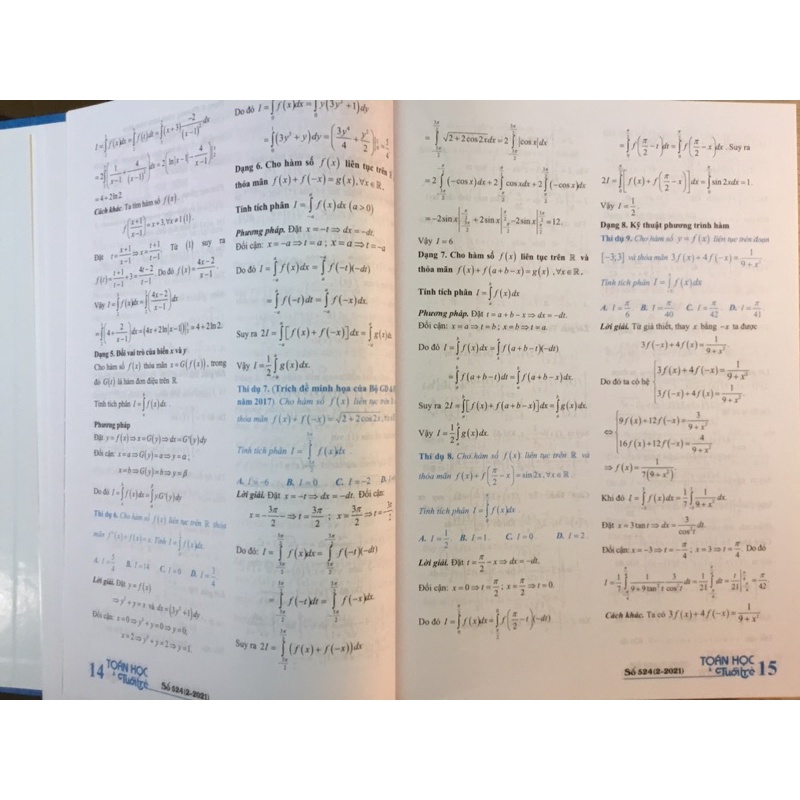 I = ∫f(x)dx = ∫f(t)dt = ∫(x+3) -2/(x-1)² dx
= 2∫[1/(x-1) + 4/(x-1)²]dx = 2(ln|x-1| - 4/(x-1))
= 4 + 2ln2.
Cách khác. Ta tìm hàm số f(x).
f((x+1)/(x-1)) = x+3, ∀x ≠ 1 (1).
Đặt t = (x+1)/(x-1) ⇒ x = (t+1)/(t-1). Từ (1) suy ra
f(t) = (t+1)/(t-1) + 3 = (4t-2)/(t-1). Do đó f(x) = (4x-2)/(x-1).
Vậy I = ∫f(x)dx = ∫((4x-2)/(x-1))dx
= ∫(4 + 2/(x-1))dx = (4x + 2ln|x-1|) = 4 + 2ln2.
Dạng 5. Đổi vai trò của biến x và y
Cho hàm số f(x) thỏa mãn x = G(f(x)), trong
đó G(t) là hàm đơn điệu trên ℝ.
Tính tích phân I = ∫f(x)dx.
Phương pháp
Đặt y = f(x) ⇒ x = G(y) ⇒ dx = G'(y)dy
Đổi cận: x = a ⇒ G(y) = a ⇒ y = α;
x = b ⇒ G(y) = b ⇒ y = β
Do đó I = ∫f(x)dx = ∫yG'(y)dy
Thí dụ 6. Cho hàm số f(x) liên tục trên ℝ thỏa
mãn f³(x) + f(x) = x. Tính I = ∫f(x)dx.
B. I = 14 C. I = 0
Lời giải. Đặt y = f(x)
⇒ y³ + y = x và dx = (3y² + 1)dy
Đổi cận: x = 0 ⇒ y³ + y = 0 ⇒ y = 0;
x = 2 ⇒ y³ + y = 2 ⇒ y = 1.
14 TOÁN HỌC & Tuổi trẻ
Do đó I = ∫f(x)dx = ∫y(3y² + 1)dy
= ∫(3y³ + y)dy = (3y⁴/4 + y²/2)
Dạng 6. Cho hàm số f(x) liên tục trên
thỏa mãn f(x) + f(-x) = g(x), ∀x ∈ ℝ.
Tính tích phân I = ∫f(x)dx (a > 0)
Phương pháp. Đặt x = -t ⇒ dx = -dt.
Đổi cận: x = -a ⇒ t = a; x = a ⇒ t = -a
Do đó I = ∫f(x)dx = ∫f(-t)(-dt)
= ∫f(-t)dt = ∫f(-x)dx.
Suy ra 2I = ∫[f(x) + f(-x)]dx = ∫g(x)
Vậy I = 1/2 ∫g(x)dx.
Thí dụ 7. (Trích đề minh họa của Bộ GD
năm 2017). Cho hàm số f(x) liên tục trên
thỏa mãn f(x) + f(-x) = √(2 + 2cos2x),
Tính tích phân I = ∫f(x)dx.
A. I = -6 B. I = 0 C. I = -2
Lời giải. Đặt x = -t ⇒ dx = -dt. Đổi cận:
x = -3π/2 ⇒ t = 3π/2; x = 3π/2 ⇒ t = -3π/2
Do đó: I = ∫f(x)dx = ∫f(-t)(-dt)
= ∫f(-t)dt = ∫f(-x)dx.
Suy ra 2I = ∫(f(x) + f(-x))dx
Số 524(2-2021)
= ∫√(2 + 2cos2x)dx = 2∫|cosx|dx
= 2∫(-cosx)dx + 2∫cosxdx + 2∫(-cosx)dx
= -2sinx| + 2sinx| - 2sinx| = 12.
Vậy I = 6
Dạng 7. Cho hàm số f(x) liên tục trên ℝ và
thỏa mãn f(x) + f(a+b-x) = g(x), ∀x ∈ ℝ.
Tính tích phân I = ∫f(x)dx
Phương pháp. Đặt t = a+b-x ⇒ dx = -dt.
Đổi cận: x = a ⇒ t = b; x = b ⇒ t = a.
Do đó I = ∫f(x)dx = ∫f(a+b-t)(-dt)
= ∫f(a+b-t)dt = ∫f(a+b-x)dx.
Suy ra 2I = ∫[f(x) + f(a+b-x)]dx = ∫g(x)dx.
Vậy I = 1/2 ∫g(x)dx.
Thí dụ 8. Cho hàm số f(x) liên tục trên ℝ và
thỏa mãn f(x) + f(π/2 - x) = sin2x, ∀x ∈ ℝ.
Tính tích phân I = ∫f(x)dx.
A. I = 1/2 B. I = 1. C. I = 0 D. I = 2
Lời giải. Đặt t = π/2 - x ⇒ dx = -dt.
Đổi cận: x = 0 ⇒ t = π/2; x = π/2 ⇒ t = 0.
Do đó I = ∫f(x)dx = ∫f(π/2 - t)(-dt)
= ∫f(π/2 - t)dt = ∫f(π/2 - x)dx. Suy ra
2I = ∫[f(x) + f(π/2 - x)]dx = ∫sin2xdx = 1.
Vậy I = 1/2.
Dạng 8. Kỹ thuật phương trình hàm
Thí dụ 9. Cho hàm số y = f(x) liên tục trên đoạn
[-3;3] và thỏa mãn 3f(x) + 4f(-x) = 1/(9+x²)
Tính tích phân I = ∫f(x)dx
A. I = π/6 B. I = π/40 C. I = π/42 D. I = π/41
Lời giải. Từ giả thiết, thay x bằng -x ta được
3f(-x) + 4f(x) = 1/(9+x²).
Do đó ta có hệ {3f(x) + 4f(-x) = 1/(9+x²)
{3f(-x) + 4f(x) = 1/(9+x²)
⇔ {9f(x) + 12f(-x) = 3/(9+x²)
{16f(x) + 12f(-x) = 4/(9+x²)
⇒ f(x) = 1/(7(9+x²))
Khi đó I = ∫f(x)dx = 1/7 ∫1/(9+x²) dx.
Đặt x = 3tant ⇒ dx = 3/cos²t dt.
Đổi cận: x = -3 ⇒ t = -π/4; x = 3 ⇒ t = π/4. Do đó
I = 1/7 ∫1/(9+9tan²t) 3/cos²t dt = 1/21 ∫dt = t/21| = π/42
Cách khác. Ta có 3f(x) + 4f(-x) = 1/(9+x²)
Số 524(2-2021) TOÁN HỌC & Tuổi trẻ 15